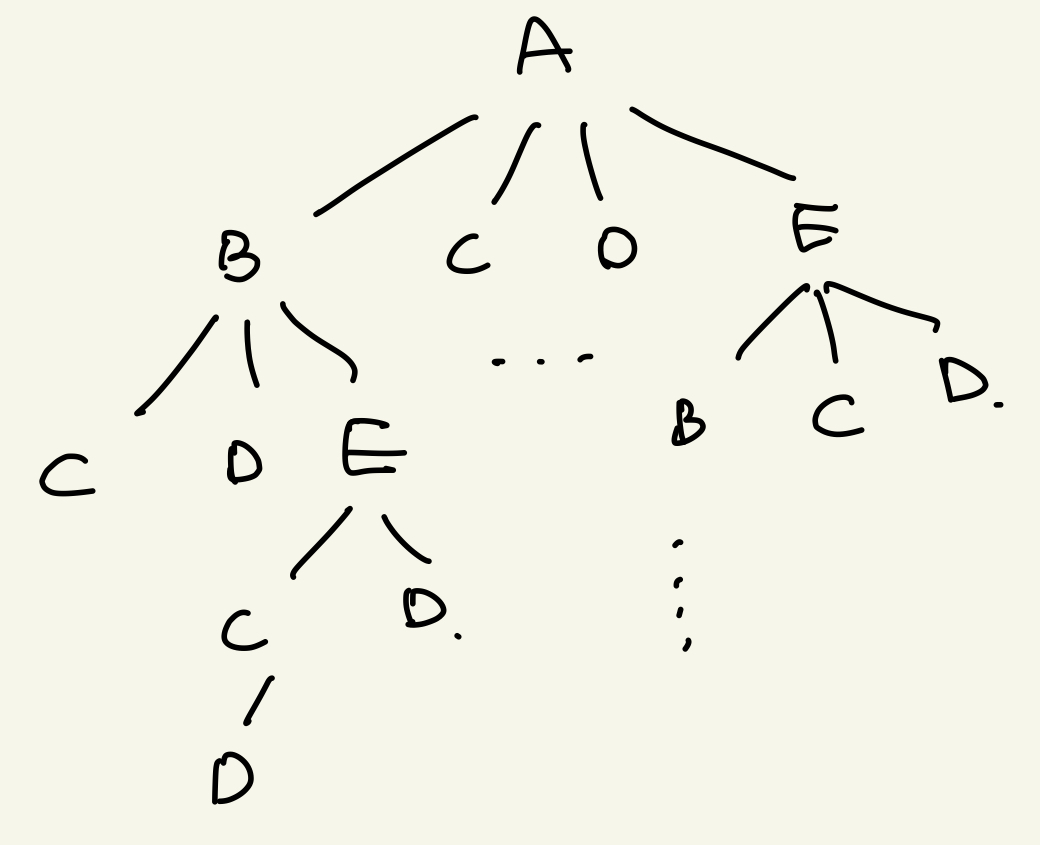 A
B C D E
C D E . . . B C D.
C D.
D